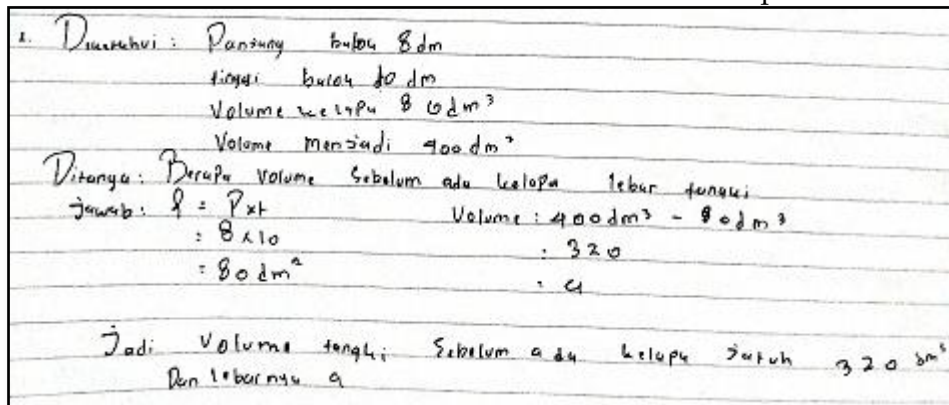 1. Diketahui : Panjang balok 8 dm
tinggi balok 10 dm
Volume kelapa 80 dm³
Volume menjadi 400 dm³
Ditanya : Berapa Volume Sebelum ada kelapa lebar tangki
Jawab : l = P x t Volume : 400 dm³ - 80 dm³
: 8 x 10 : 320
= 80 dm² : 4
Jadi Volume tangki Sebelum ada kelapa jatuh 320 dm³
Dan lebarnya 4